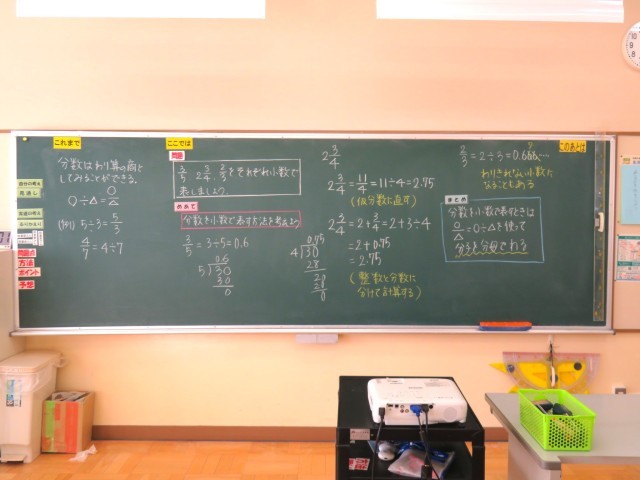 これまで
分数はわり算の商と
してみることができる。
○÷△=○/△
(例) 5÷3=5/3
4/7=4÷7
ここでは
問題
3/5 2 3/4 2/3をそれぞれ小数で
表しましょう。
めあて
分数を小数で表す方法を考えよう
3/5=3÷5=0.6
0.6
5)30
30
0
2 3/4
2 3/4=11/4=11÷4=2.75
(仮分数に直す)
2 3/4=2+3/4=2+3÷4
=2+0.75
=2.75
(整数と分数に
分けて計算する)
0.75
4)30
28
20
20
0
このあとは
2/3=2÷3=0.666……
わりきれない小数に
なることもある
まとめ
分数を小数で表すときは
○/△=○÷△を使って
分子を分母でわる
見通し
問題点
方法
ポイント
予想
10
9
8